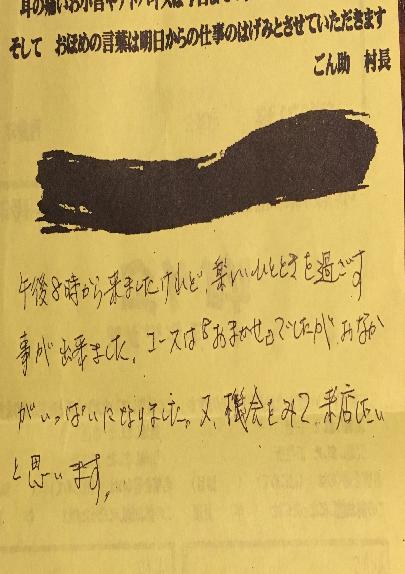 耳の痛いお小言やアドバイスは今日
そして おほめの言葉は明日からの仕事のはげみとさせていただきます
ごん助 村長
午後8時から来ましたけれど、楽しいひとときを過ごす
事が出来ました。コースは『おまかせ』でしたが、おなか
がいっぱいになりました。又、機会をみて、来店したい
と思います。